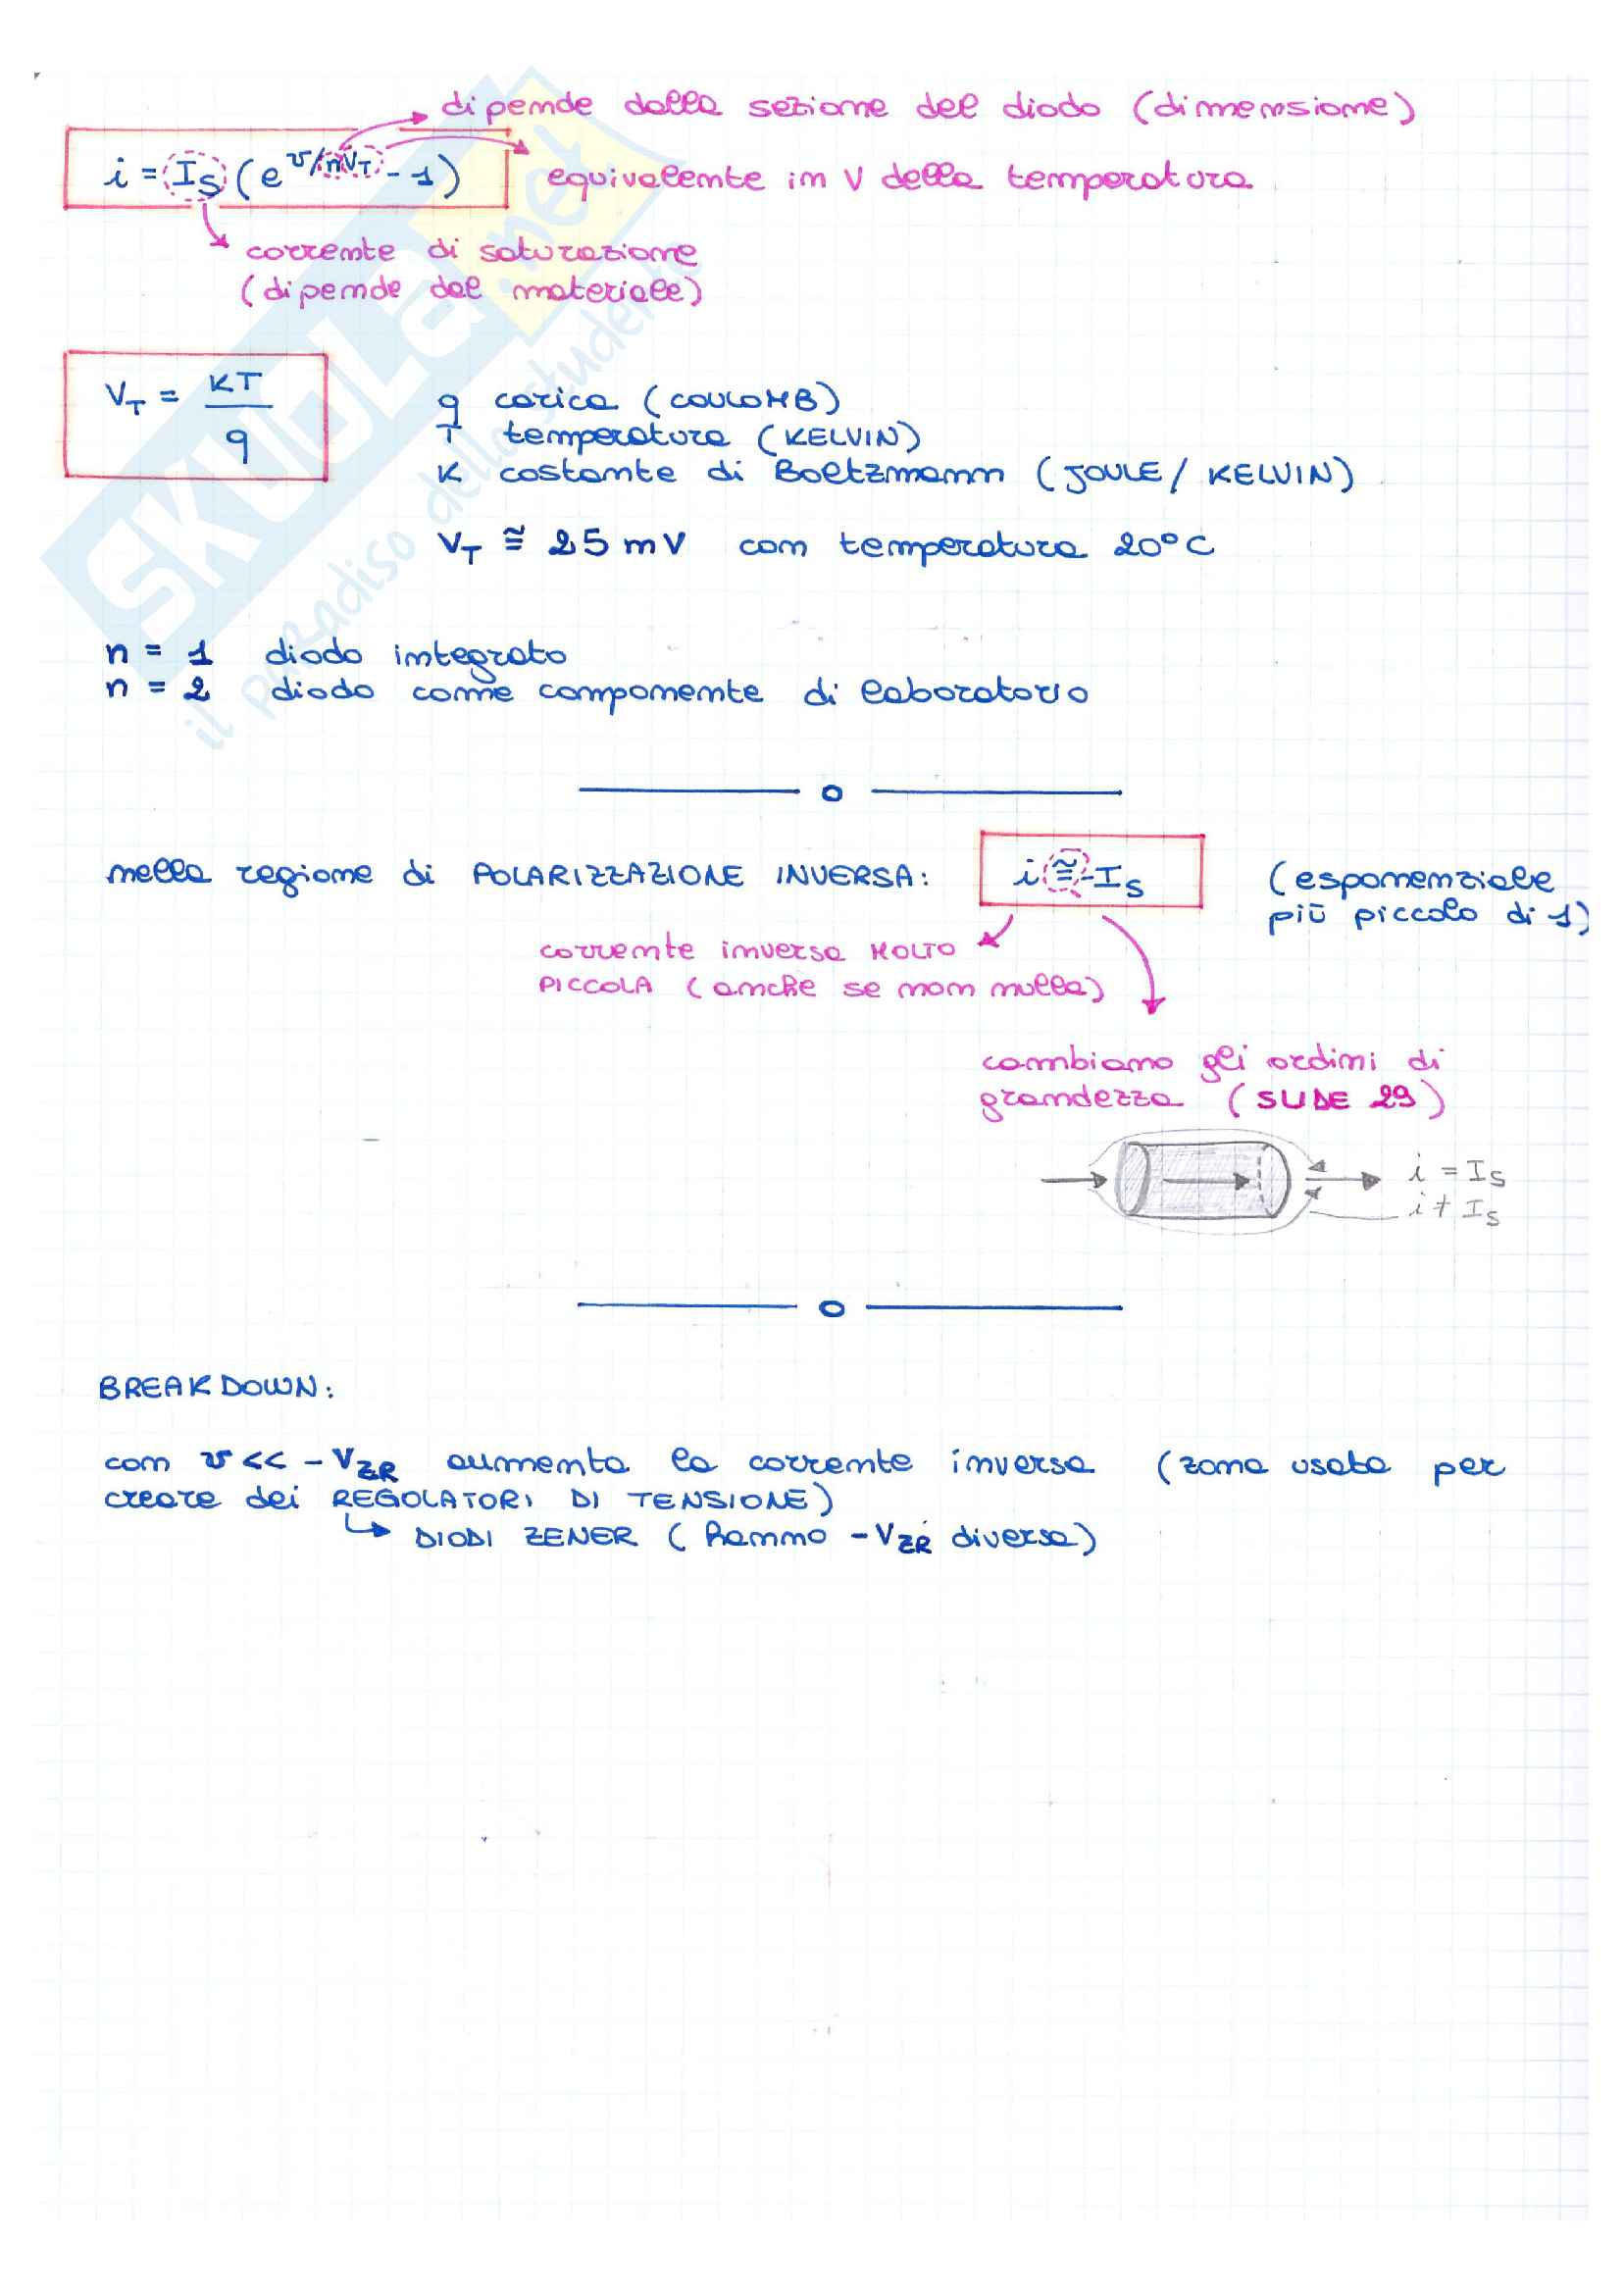 dipende dalla sezione del diodo (dimensione)
i = Is (e^v/nVT - 1)
equivalente in V della temperatura
corrente di saturazione
(dipende dal materiale)
VT = KT / q
q carica (COULOMB)
T temperatura (KELVIN)
K costante di Boltzmann (JOULE / KELVIN)
VT ≅ 25 mV con temperatura 20°C
n = 1 diodo integrato
n = 2 diodo come componente di laboratorio
nella regione di POLARIZZAZIONE INVERSA: i ≅ -Is (esponenziale
più piccolo di 1)
corrente inversa MOLTO
PICCOLA (anche se non nulla)
cambiano gli ordini di
grandezza (SLIDE 29)
i = Is
i ≠ Is
BREAKDOWN:
con v << -VZR aumenta la corrente inversa (zona usata per
creare dei REGOLATORI DI TENSIONE)
DIODI ZENER (hanno -VZR diversa)
SKUOLA.net
il paradiso dello studente